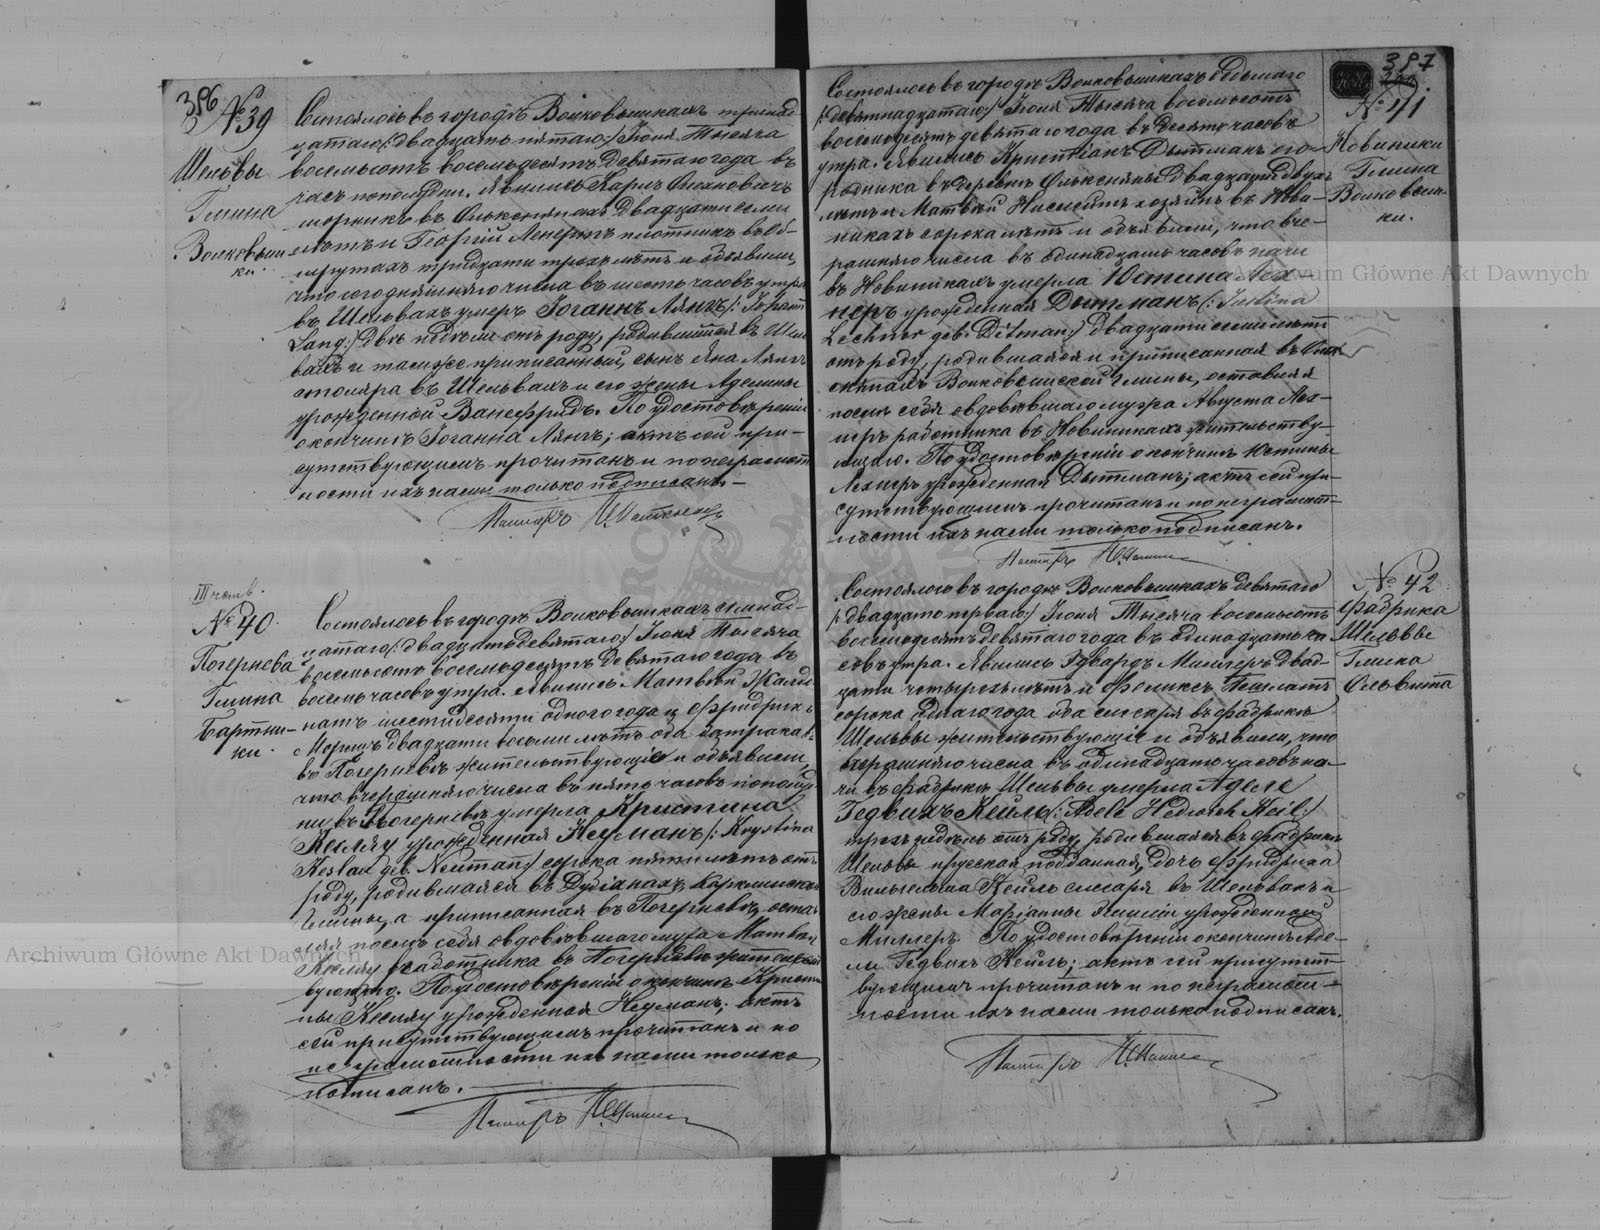 386
№ 39
Шельвы
Гмина
Волковыш-
ки.
Состоялось въ городѣ Волковышкахъ тринад-
цатаго /:двадцать пятаго:/ Іюня Тысяча
восемьсотъ восемьдесятъ девятаго года въ
часъ пополудни. Явились Карлъ
въ Олькснянахъ двадцати семи
лѣтъ и Георгій Ленертъ плотникъ въ Об-
шрутахъ тридцати трехъ лѣтъ и объявили,
что сегодняшняго числа въ шесть часовъ утра
въ Шельвахъ умеръ Іоганнъ Лянгъ /: Johann
Lang:/ двѣ недѣли отъ роду, родившійся въ Шель
вахъ и тамже приписанный, сынъ Яна Лянгъ
столяра въ Шельвахъ и его жены Аделины
урожденной Ванефридъ. По удостовѣреніи
о кончинѣ Іоганна Лянгъ; актъ сей при-
сутствующимъ прочитанъ и по неграмот
ности ихъ нами только подписанъ.—
Пасторъ
III четв.
№ 40.
Погернева
Гмина
Бартни-
ки.
Состоялось въ городѣ Волковышкахъ семнад-
цатаго /:двадцать девятаго:/ Іюня Тысяча
восемьсотъ восемьдесятъ девятаго года въ
восемь часовъ утра. Явились Матвѣй
шестидесяти одного года и Фридрихъ
Морицъ двадцати восьми лѣтъ оба батрака
въ Погерневѣ жительствующіе и объявили,
что вчерашняго числа въ пять часовъ пополуд
ни въ Погерневѣ умерла Кристина
Кесляу урожденная Неуманъ /: Krystina
Keslau geb. Neuman:/ сорока пяти лѣтъ отъ
роду, родившаяся въ Дубянахъ,
Гмины, а приписанная въ Погерневѣ, оста-
вляя послѣ себя овдовѣвшаго мужа Матвѣя
Кесляу работника въ Погерневѣ жительст
вующаго. По удостовѣреніи о кончинѣ Кристи
ны Кесляу урожденная Неуманъ; актъ
сей присутствующимъ прочитанъ и по
неграмотности ихъ нами только
подписанъ.
Пасторъ
387
№ 41
Новиники
Гмина
Волковыш-
ки.
Состоялось въ городѣ Волковышкахъ седьмаго
/:девятнадцатаго:/ Іюня Тысяча восемьсотъ
восемьдесятъ девятаго года въ десять часовъ
утра. Явились Христіанъ Дытманъ ого-
родника въ деревнѣ Олькснянъ двадцати двухъ
лѣтъ и Матвѣй хозяинъ въ Нови-
никахъ сорока лѣтъ и объявили, что вче-
рашняго числа въ одинадцать часовъ ночи
въ Новиникахъ умерла Юстина Лех-
неръ урожденная Дытманъ /: Justina
Lechner geb. Ditman:/ двадцати семи лѣтъ
отъ роду, родившаяся и приписанная въ Ольк
снянахъ Волковышской гмины, оставляя
послѣ себя овдовѣвшаго мужа Августа Лех-
неръ работника въ Новиникахъ жительству-
ющаго. По удостовѣреніи о кончинѣ Юстины
Лехнеръ урожденная Дытманъ; актъ сей при-
сутствующимъ прочитанъ и по неграмот-
ности ихъ нами только подписанъ.
Пасторъ
№ 42
Фабрика
Шельвы
Гмина
Ольвита
Состоялось въ городѣ Волковышкахъ девятаго
/:двадцать перваго:/ Іюня Тысяча восемьсотъ
восемьдесятъ девятаго года въ одинадцать ча
совъ утра. Явились Эдвардъ Миллеръ двад-
цати четырехъ лѣтъ и Феликсъ
сорока одного года оба слесаря въ фабрикѣ
Шельвы жительствующіе и объявили, что
вчерашняго числа въ одинадцать часовъ но-
чи въ фабрикѣ Шельвы умерла Аделе
Гедвихъ Кейль /: Adele Hedwich Keil:/
трехъ недѣль отъ роду, родившаяся въ фабрикѣ
Шельвы прусская подданная, дочь Фридриха
Вильгельма Кейль слесаря въ Шельвахъ и
его жены Маріанны Эмиліи урожденной
Миллеръ. По удостовѣреніи о кончинѣ Аде-
ли Гедвихъ Кейль; актъ сей присутст-
вующимъ прочитанъ и по неграмот-
ности ихъ нами только подписанъ.
Пасторъ
Archiwum Główne Akt Dawnych
Archiwum Główne Akt Dawnych